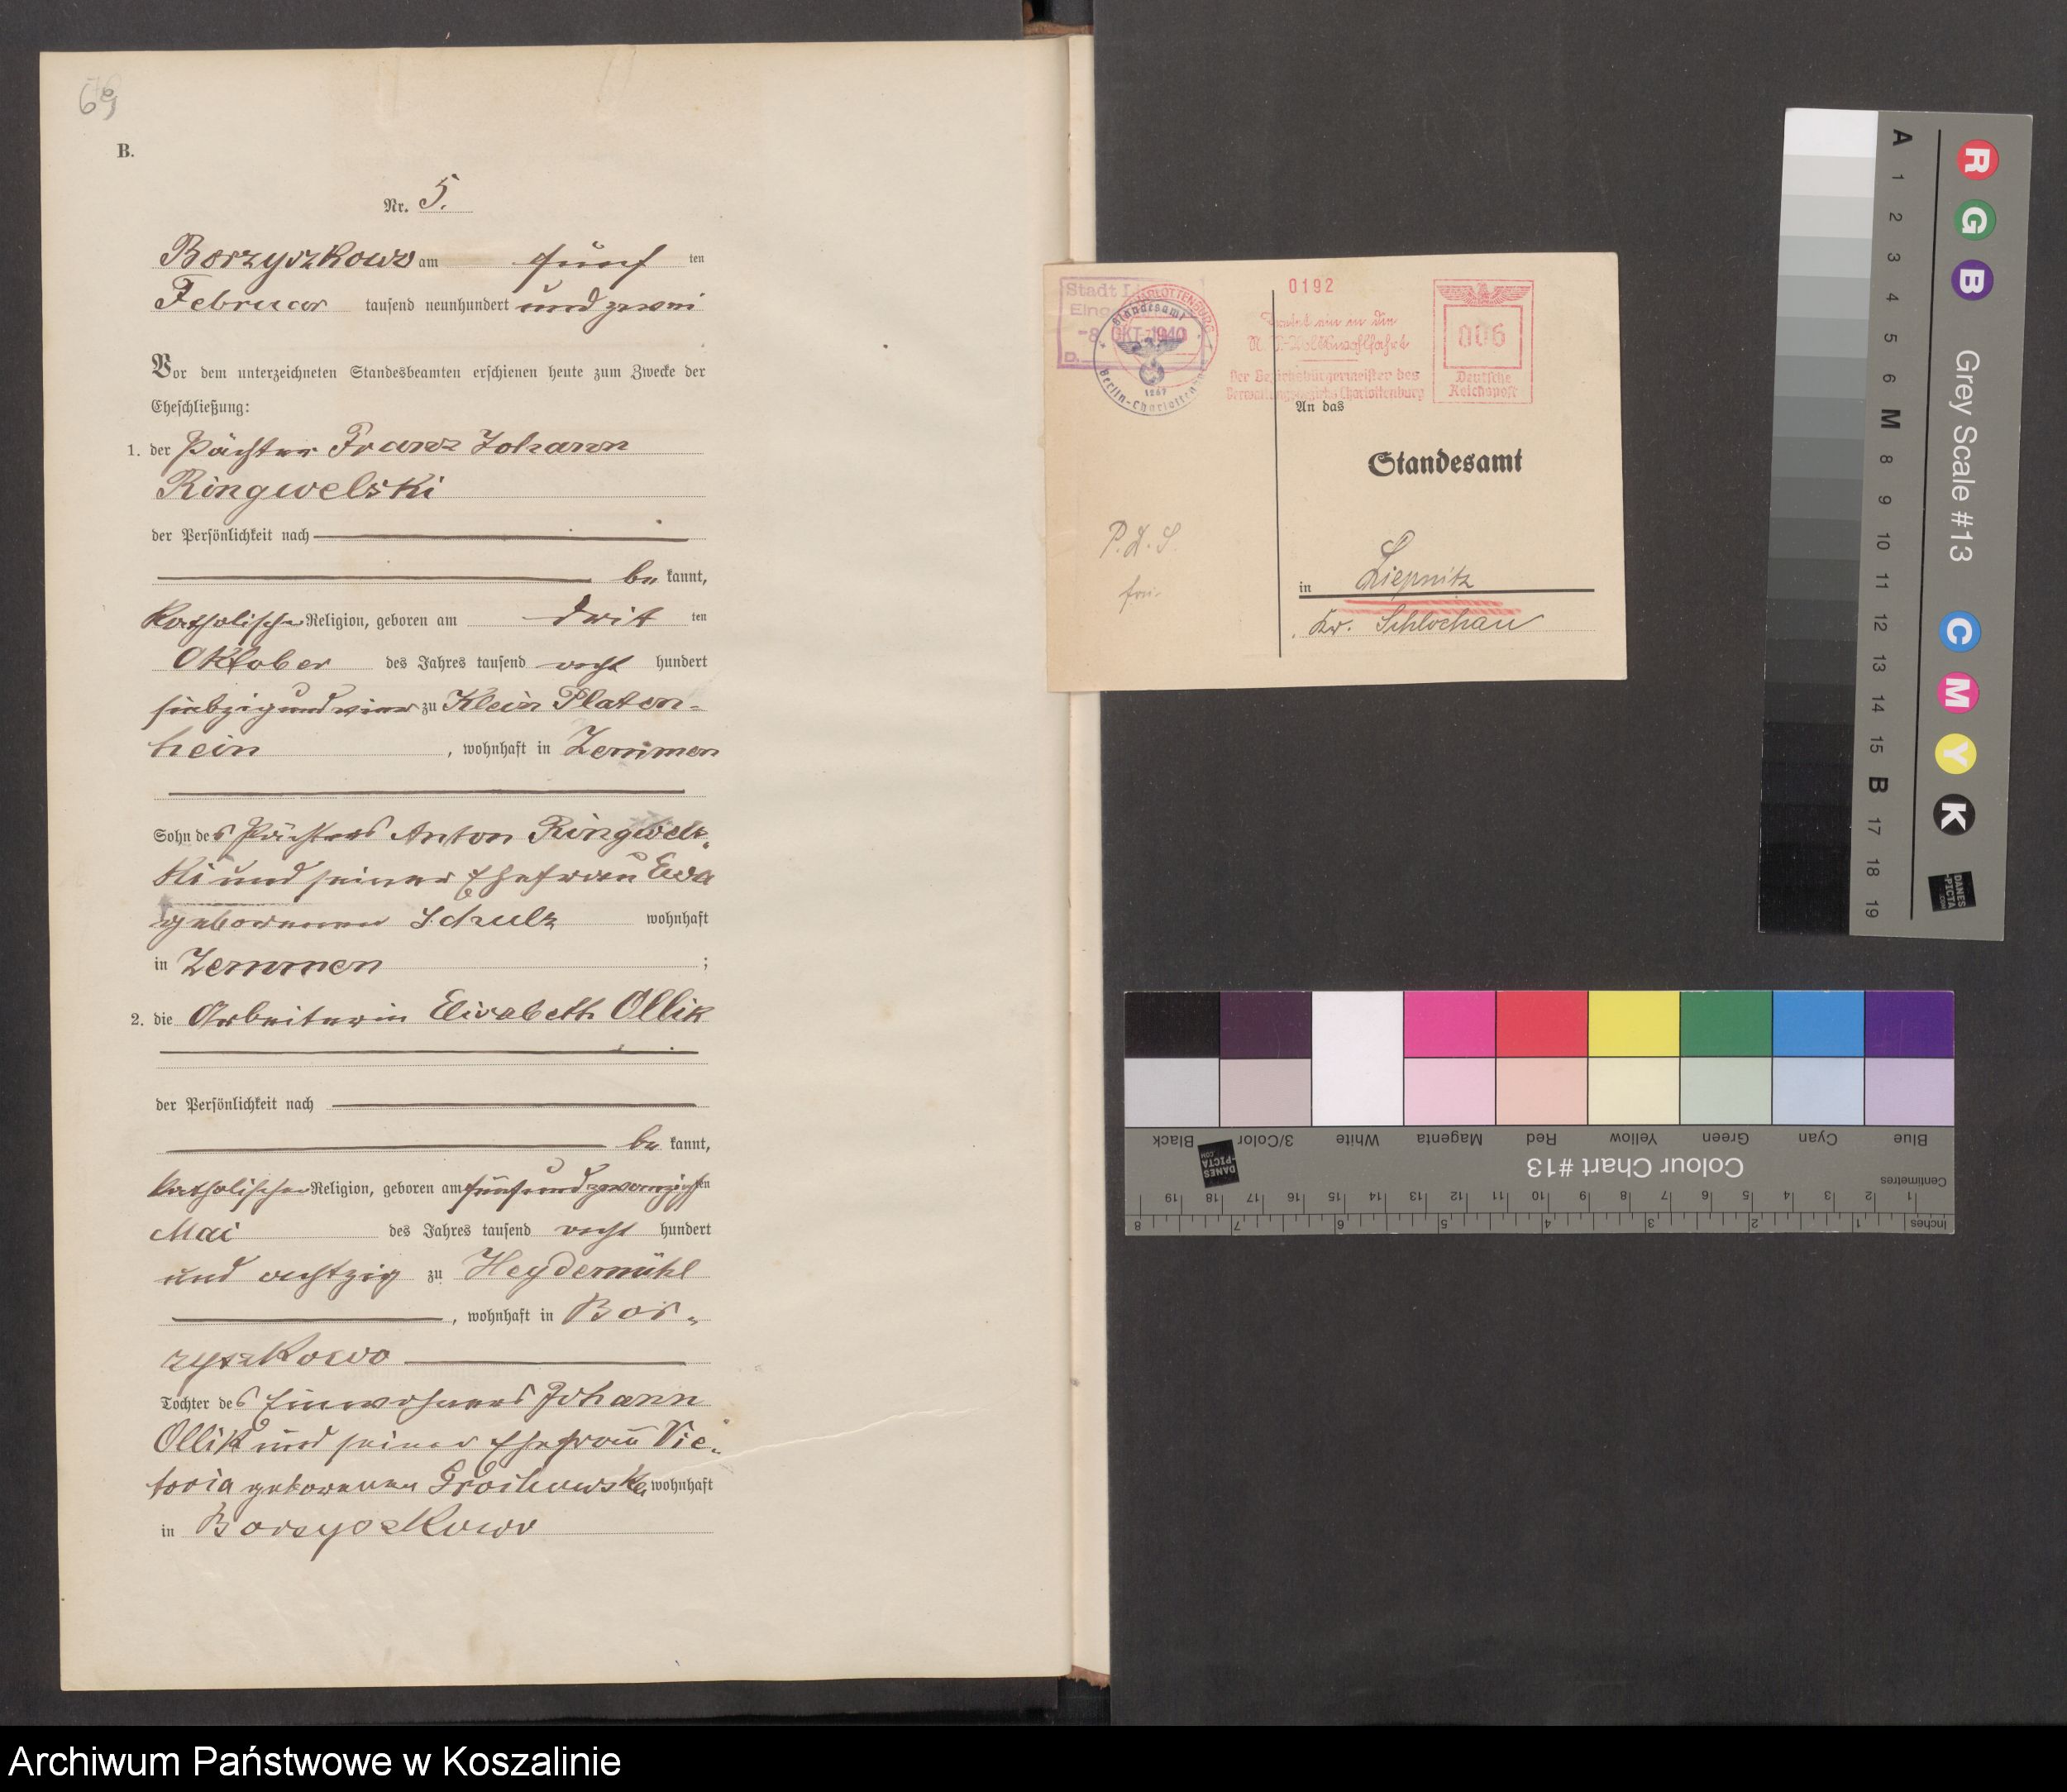 69
B.
Nr. 5.
Borzyszkowo am fünf ten
Februar tausend neunhundert und zwei
Vor dem unterzeichneten Standesbeamten erschienen heute zum Zwecke der
Eheschließung:
1. der Pächter Franz Johann
Ringwelski
der Persönlichkeit nach
be kannt,
katholischer Religion, geboren am drit ten
Oktober des Jahres tausend acht hundert
siebzig und vier zu Klein Platen-
hein, wohnhaft in Zemmen
Sohn des Pächters Anton Ringwels-
ki und seiner Ehefrau Eva
geborenen Schulz wohnhaft
in Zemmen ;
2. die Arbeiterin Elisabeth Ollik
der Persönlichkeit nach
be kannt,
katholischer Religion, geboren am fünf und zwanzigsten
Mai des Jahres tausend acht hundert
und achtzig zu Heydemühl
, wohnhaft in Bor-
zyszkowo
Tochter des Einwohners Johann
Ollik und seiner Ehefrau Vic-
toria geborenen wohnhaft
in Borzyszkowo
Stadt
Eing
-8. OKT. 1940
D.
CHARLOTTENBURG
Standesamt
Berlin-Charlottenburg
0192
Tretet ein in die
N.S.-Volkswohlfahrt
Der Bezirksbürgermeister des
Verwaltungsbezirks Charlottenburg
006
Deutsche
Reichspost
An das
Standesamt
in Liepnitz
Kr. Schlochau
A 1 2 3 4 5 6 M 8 9 10 11 12 13 14 15 B 17 18 19
R G B
Grey Scale #13
C M Y K
DANES
-PICTA
.COM
Blue Cyan Green Yellow Red Magenta White 3/Color Black
Colour Chart #13
DANES
-PICTA
.COM
Centimetres
1 2 3 4 5 6 7 8 9 10 11 12 13 14 15 16 17 18 19
Inches 1 2 3 4 5 6 7 8
Archiwum Państwowe w Koszalinie